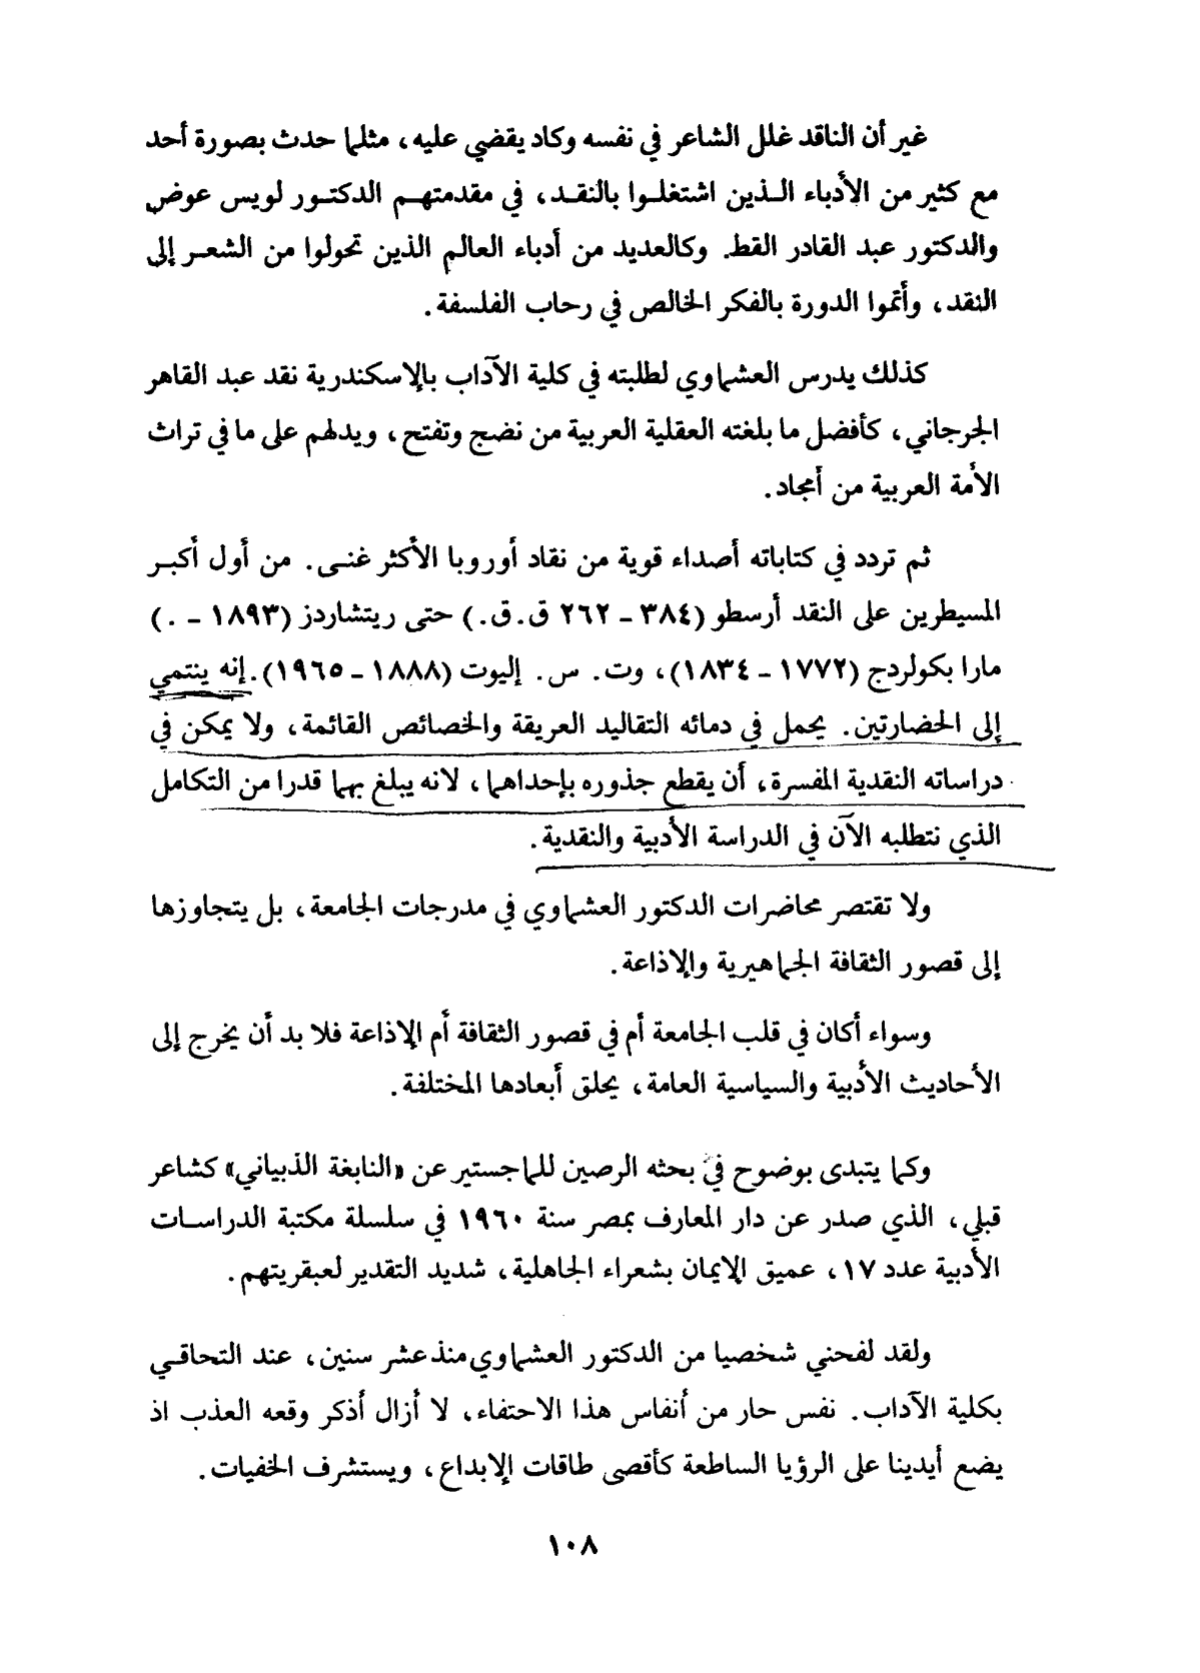 غير أن الناقد غلل الشاعر في نفسه وكاد يقضي عليه، مثلما حدث بصورة أحد
مع كثير من الأدباء الذين اشتغلوا بالنقد، في مقدمتهم الدكتور لويس عوض
والدكتور عبد القادر القط. وكالعديد من أدباء العالم الذين تحولوا من الشعر إلى
النقد، وأتموا الدورة بالفكر الخالص في رحاب الفلسفة.
كذلك يدرس العشماوي لطلبته في كلية الآداب بالإسكندرية نقد عبد القاهر
الجرجاني، كأفضل ما بلغته العقلية العربية من نضج وتفتح، ويدلهم على ما في تراث
الأمة العربية من أمجاد.
ثم تردد في كتاباته أصداء قوية من نقاد أوروبا الأكثر غنى. من أول أكبر
المسيطرين على النقد أرسطو (٣٨٤ - ٢٦٢ ق.ق.) حتى ريتشاردز (١٨٩٣ - .)
مارا بكولردج (١٧٧٢ - ١٨٣٤)، وت. س. إليوت (١٨٨٨ - ١٩٦٥). إنه ينتمي
إلى الحضارتين. يحمل في دمائه التقاليد العريقة والخصائص القائمة، ولا يمكن في
دراساته النقدية المفسرة، أن يقطع جذوره بإحداهما، لانه يبلغ بهما قدرا من التكامل
الذي نتطلبه الآن في الدراسة الأدبية والنقدية.
ولا تقتصر محاضرات الدكتور العشماوي في مدرجات الجامعة، بل يتجاوزها
إلى قصور الثقافة الجماهيرية والإذاعة.
وسواء أكان في قلب الجامعة أم في قصور الثقافة أم الإذاعة فلا بد أن يخرج إلى
الأحاديث الأدبية والسياسية العامة، يحلق أبعادها المختلفة.
وكما يتبدى بوضوح في بحثه الرصين للماجستير عن «النابغة الذبياني» كشاعر
قبلي، الذي صدر عن دار المعارف بمصر سنة ١٩٦٠ في سلسلة مكتبة الدراسات
الأدبية عدد ١٧، عميق الإيمان بشعراء الجاهلية، شديد التقدير لعبقريتهم.
ولقد لفحني شخصيا من الدكتور العشماوي منذ عشر سنين، عند التحاقي
بكلية الآداب. نفس حار من أنفاس هذا الاحتفاء، لا أزال أذكر وقعه العذب اذ
يضع أيدينا على الرؤيا الساطعة كأقصى طاقات الإبداع، ويستشرف الخفيات.
١٠٨